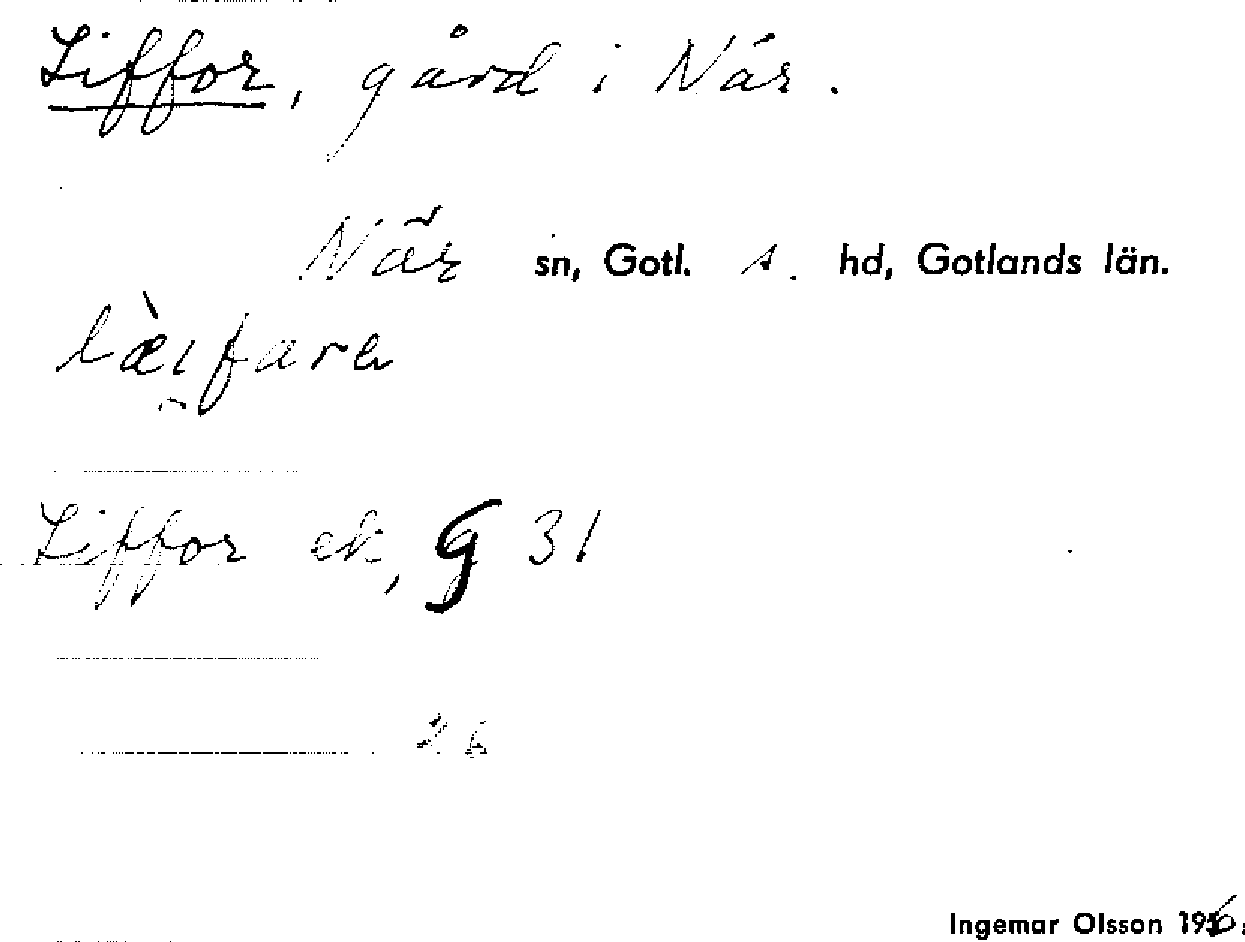 Liffor, gård i När.
När sn, Gotl. s. hd, Gotlands län.
Liffor ek, G 31
26
Ingemar Olsson 195